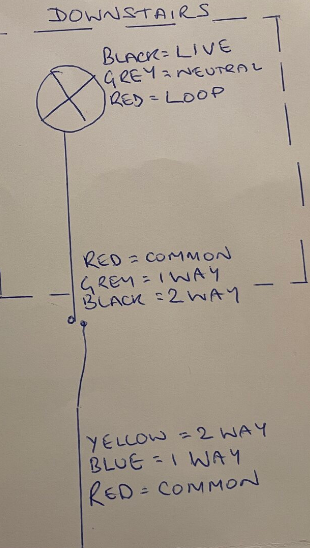 DOWNSTAIRS
BLACK = LIVE
GREY = NEUTRAL
RED = LOOP
RED = COMMON
GREY = 1 WAY
BLACK = 2 WAY
YELLOW = 2 WAY
BLUE = 1 WAY
RED = COMMON